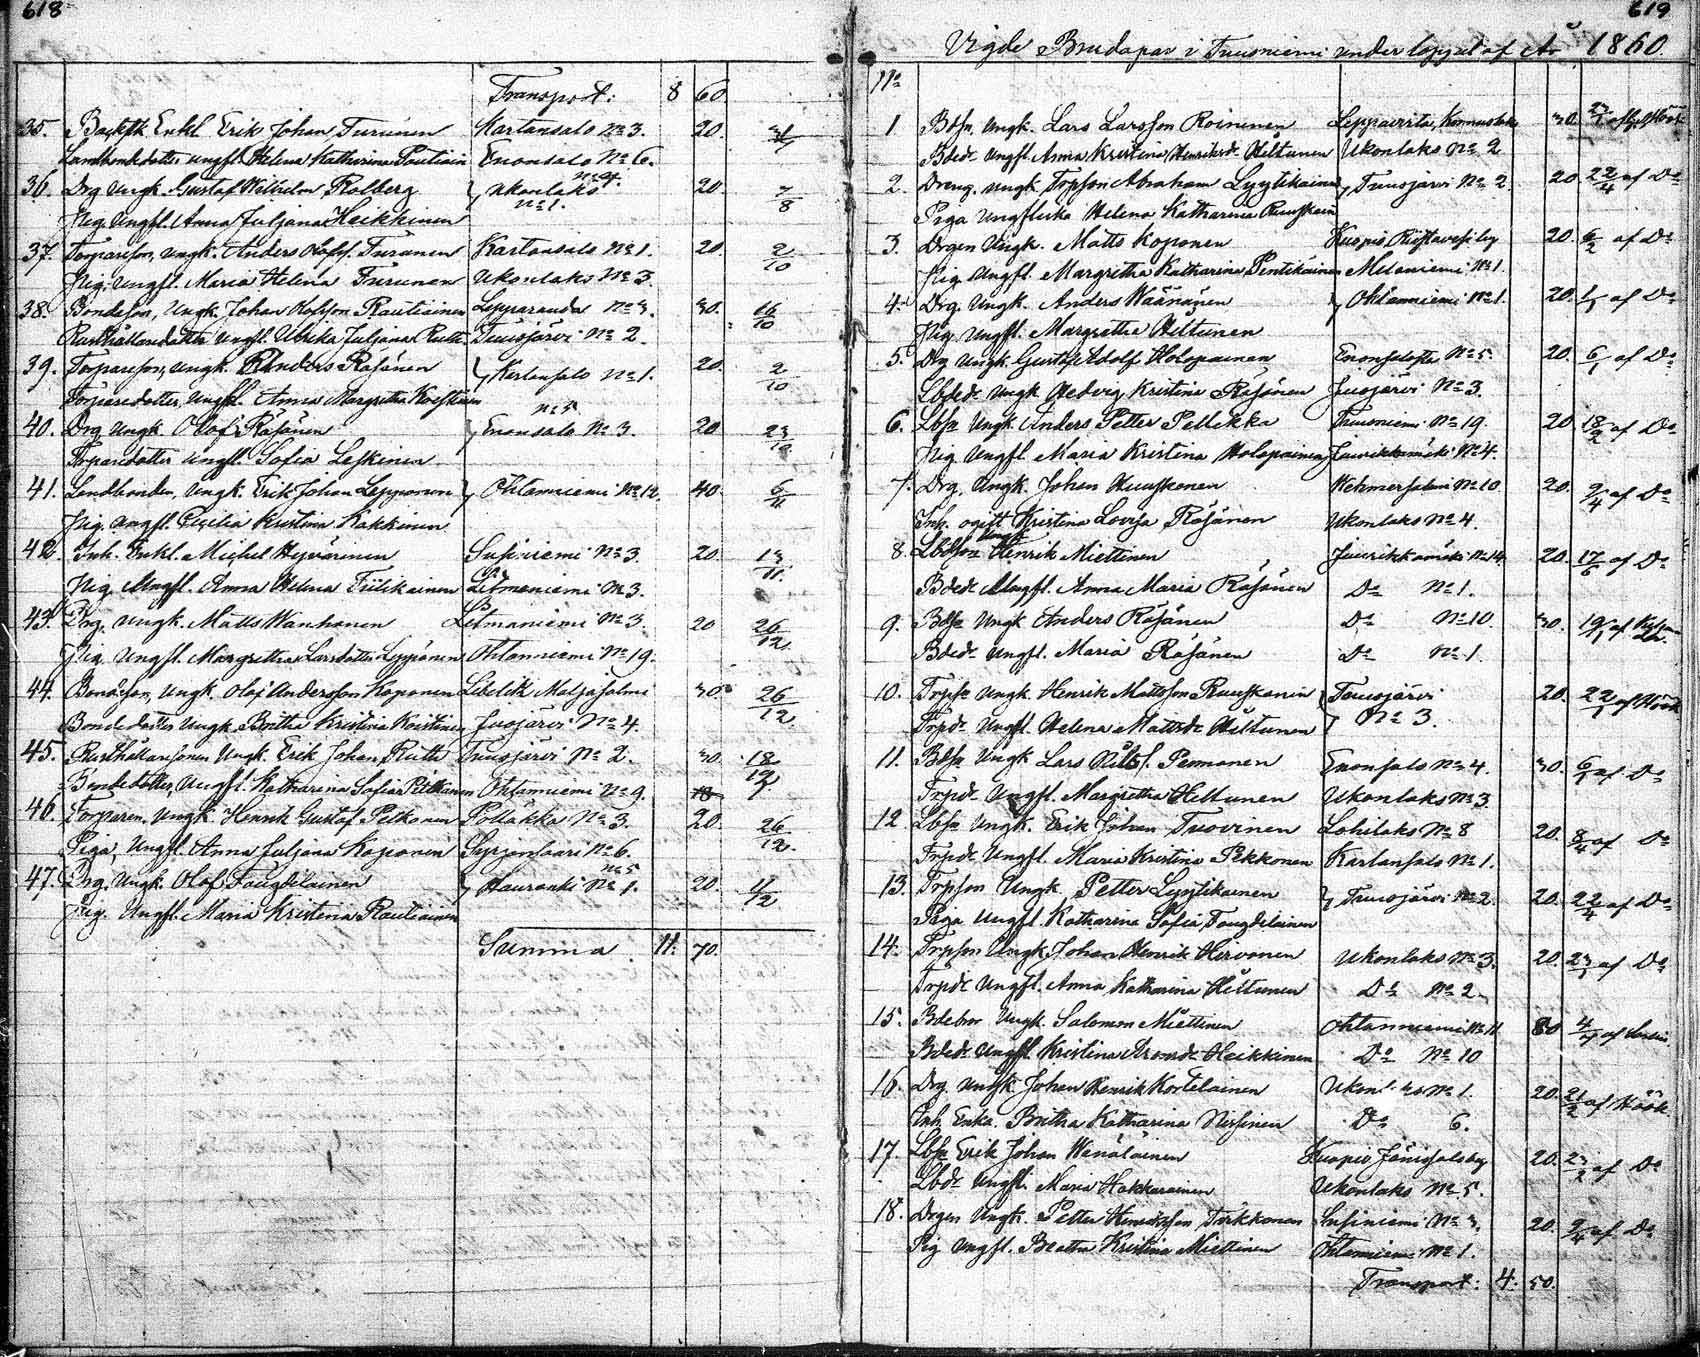 618
Transport: 8 60.
35. Enkl Erik Johan Turunen Kartansalo No 3. 20.
Landbondedotter ungfl. Helena Katharina Pautiain Enonsalo No 6.
36. Drg ungk. Gustaf Wilhelm Rolberg Ukonlaks No 1. 20 7/8
Pig. Ungfl. Anna Juljana Heikkinen
37. Torpareson, ungk. Anders Olofs. Turunen Kartansalo No 1. 20. 2/10
Pig. ungfl. Maria Helena Turunen Ukonlaks No 3.
38. Bondeson, Ungk. Johan Olofson Rautiainen Lepparanda No 3. 30. 16/10
Rusthållaredotter ungfl. Ulrika Juljana Rutte Tuusjärvi No 2.
39. Torpareson, ungk. Anders Räsänen Kartansalo No 1. 20. 2/10
Torparedotter, ungfl. Anna Margretha
40. Drg. Ungk. Olof Räsänen Enonsalo No 3. No 5 20
Torparedotter ungfl. Sofia Leskinen
41. Landbonden, Ungk. Erik Johan Lepponen Ohtanniemi No 12. 40. 6/11
Pig. ungfl. Cecilia Kristina Kakkinen
42. Inh. Enkl. Michel Hyvärinen Susiniemi No 3. 20. 13/11.
Pig. Ungfl. Anna Helena Tiilikainen Litmaniemi No 3.
43. Drg. ungk. Matts Wanhanen Litmaniemi No 3. 20 26/12
Pig. Ungfl. Margretha Larsdotter Lyppönen Ohtanniemi No 19.
44. Bondeson, ungk. Olof Andersson Koponen Libelits Maljasalmi 30. 26/12.
Bondedotter Ungk. Britha Kristina Juojärvi No 4.
45. Rusthållaresonen Ungk. Erik Johan Rutte Tuusjärvi No 2. 30. 18/12
Bondedotter, Ungfl. Katharina Sofia Pitkänen Ohtanniemi No 9.
46. Torparen, Ungk. Henrik Gustaf Pelkonen Pölläkkä No 3. 20. 26/12.
Piga, Ungfl. Anna Juljana Koponen Syrjänsaari No 6.
47. Drg. Ungk. Olof Taugdelainen Hauranki No 1. No 5 20. 4/12
Pig. Ungfl. Maria Kristina Rautiainen
Summa 11. 70.
619
Vigde Brudapar i Tuusniemi under loppet af År 1860.
No
1. Bdsn. Ungk. Lars Larsson Roininen Leppävirta, 30.
Bdedr Ungfl. Anna Kristina Henriksdr Hiltunen Ukonlaks No 2
2. Dreng. ungk Trpson Abraham Lyytikainen Tuusjärvi No 2. 20 22/4 af Do
Piga Ungflicka Helena Katharina Ruuskain
3. Drgen Ungk. Matts Koponen Kuopio Riistavesi by 20. 6/2 af Do
Pig. Ungfl. Margretha Katharina Pentikäinen Melaniemi No 1.
4. Drg. Ungk. Anders Wäänänen Ohtanniemi No 1. 20. af Do
Pig Ungfl. Margretha Hiltunen
5. Drg Ungk. Gustaf Adolf Holopainen Enonsalo No 5. 20. 6/1 af Do
Lbdedr Ungk Hedvig Kristina Räsänen Juojärvi No 3.
6. Lbsn Ungk Anders Petter Pellikka Tuusniemi No 19. 20. 18/2 af Do
Pig Ungfl. Maria Kristina Holopainen Juurikkamäki No 4.
7. Drg. Ungk. Johan Ruuskonen Wehmersalmi No 10. 20. 9/4 af Do
Inh. ogift Kristina Lovisa Räsänen Ukonlaks No 4.
8. Lbdson Ungk Henrik Miettinen Juurikkamäki No 14. 20. 17/6 af Do
Bdedr Ungfl. Anna Maria Räsänen Do No 1.
9. Bdsn Ungk Anders Räsänen Do No 10 30. 19/1 af
Bdedr Ungfl. Maria Räsänen Do No 1.
10. Trpsn Ungk. Henrik Mattsson Ruuskanen Tuusjärvi 20. 22/1 af Höök
Trpdr Ungfl. Helena Mattsdr Hiltunen No 3.
11. Bdsn Ungk Lars Nilss. Pennanen Enonsalo No 4. 30. 6/1 af Do
Trpdr Ungfl. Margretha Hiltunen Ukonlaks No 3
12. Lbsn Ungk. Erik Johan Tuovinen Lohilaks No 8 20. 8/4 af Do
Trpdr Ungfl. Maria Kristina Pekkonen Kartansalo No 1.
13. Trpson Ungk. Petter Lyytikainen Tuusjärvi No 2. 20. 22/4 af Do
Piga Ungfl Katharina Sofia Taugdelainen
14. Trpson Ungk Johan Henrik Hirvonen Ukonlaks No 3. 20. 23/1 af Do
Trpdr Ungfl. Anna Katharina Hiltunen Do No 2.
15. Bdebr Ungk. Salomon Miettinen Ohtanniemi No 11 80 4/7 af
Bdedr Ungfl. Kristina Aronsdr Heikkinen Do No 10
16. Drg. Ungk. Johan Henrik Kortelainen Ukonlaks No 1. 20. 21/2 af Höök
Inh. Enka. Britha Katharina Nissinen Do 6.
17. Lbsn Erik Johan Wänäläinen Kuopio Jänissalo by 20. 23/2 af Do
Lbdr Ungfl. Maria Hakkarainen Ukonlaks No 5.
18. Drgen Ungk. Petter Henriksson Tirkkonen Susiniemi No 3. 20. 9/4 af Do
Pig Ungfl. Beatha Kristina Miettinen Ohtanniemi No 1.
Transport: 4. 50.